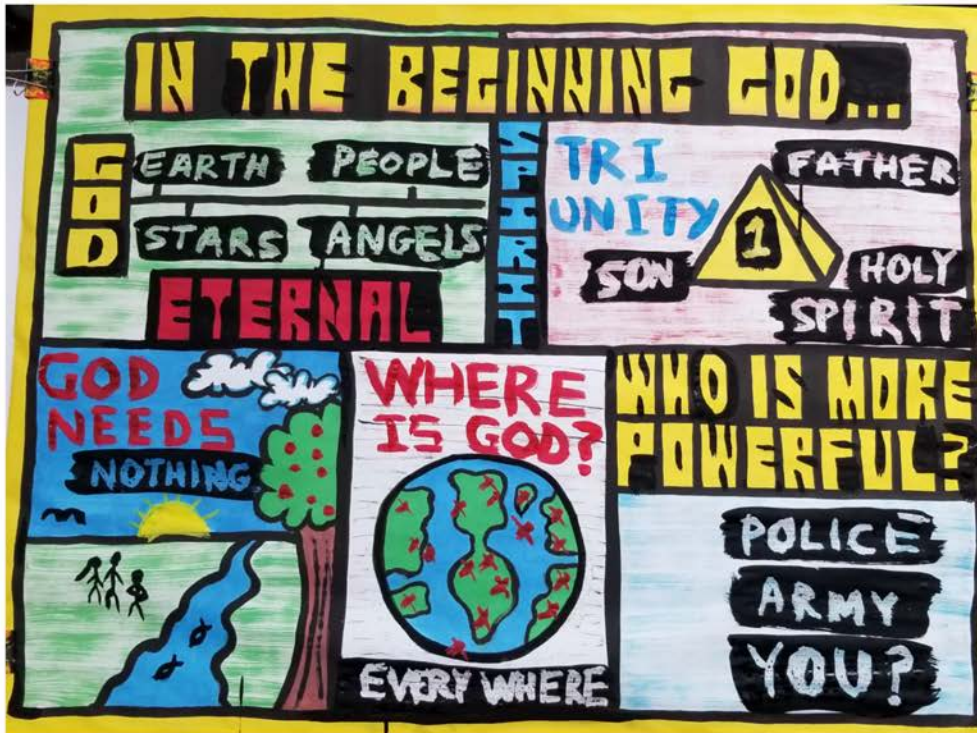 IN THE BEGINNING GOD...
GOD
EARTH PEOPLE
STARS ANGELS
ETERNAL
SPIRIT
TRI
UNITY
FATHER
1
SON
HOLY
SPIRIT
GOD
NEEDS
NOTHING
WHERE
IS GOD?
EVERY WHERE
WHO IS MORE
POWERFUL?
POLICE
ARMY
YOU?